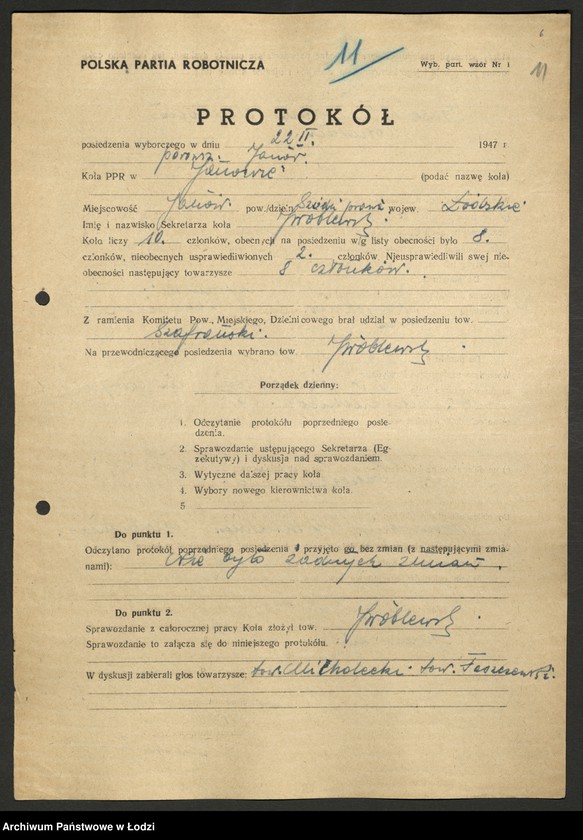 6
POLSKA PARTIA ROBOTNICZA
11
Wyb. part. wzór Nr 1
11
PROTOKÓŁ
posiedzenia wyborczego w dniu 22 II. 1947 r
Janów.
Koła PPR w Janowie (podać nazwę koła)
Miejscowość Janów. pow./dzieln. prawa wojew. Łódzkie
Imię i nazwisko Sekretarza koła Wróblewski
Koło liczy 10. członków, obecnych na posiedzeniu w/g listy obecności było 8.
członków, nieobecnych usprawiedliwionych 2. członków Nieusprawiedliwili swej nie-
obecności następujący towarzysze 8 członków.
Z ramienia Komitetu Pow., Miejskiego, Dzielnicowego brał udział w posiedzeniu tow.
Szafrański.
Na przewodniczącego posiedzenia wybrano tow. Wróblewski
Porządek dzienny:
1. Odczytanie protokółu poprzedniego posie-
dzenia.
2 Sprawozdanie ustępującego Sekretarza (Eg-
zekutywy) i dyskusja nad sprawozdaniem.
3. Wytyczne dalszej pracy koła.
4. Wybory nowego kierownictwa koła.
5
Do punktu 1.
Odczytano protokół poprzedniego posiedzenia i przyjęto go bez zmian (z następującymi zmia-
nami): nie było żadnych zmian.
Do punktu 2.
Sprawozdanie z całorocznej pracy Koła złożył tow. Wróblewski
Sprawozdanie to załącza się do niniejszego protokółu.
W dyskusji zabierali głos towarzysze: tow. Michalecki tow.
Archiwum Państwowe w Łodzi